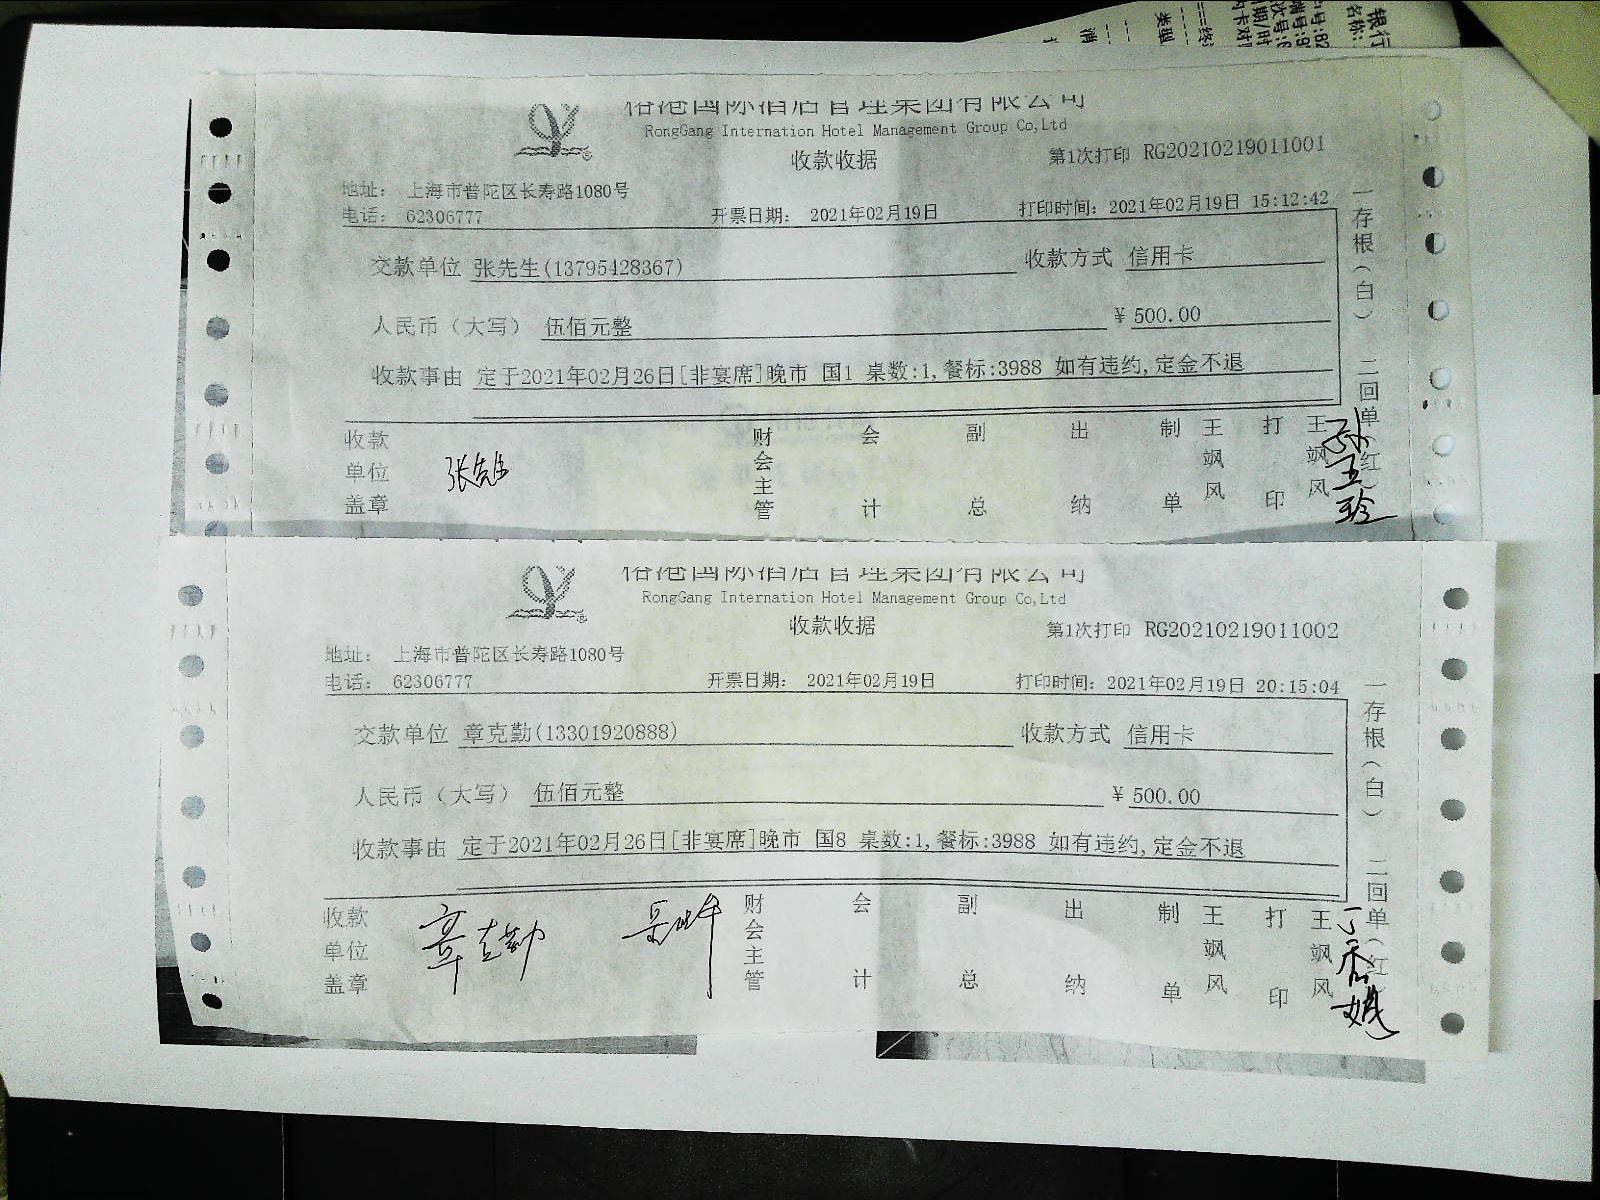 国际酒店管理集团有限公司
RongGang Internation Hotel Management Group Co,Ltd
收款收据
第1次打印 RG20210219011001
地址： 上海市普陀区长寿路1080号
电话： 62306777
开票日期： 2021年02月19日
打印时间：2021年02月19日 15:12:42
交款单位 张先生(13795428367)
收款方式 信用卡
人民币（大写） 伍佰元整
￥ 500.00
收款事由 定于2021年02月26日[非宴席]晚市 国1 桌数:1,餐标:3988 如有违约,定金不退
一存根（白） 二回单（红）
收款单位盖章
张先生
财会主管
会计
副总
出纳
制单
王飒风
打印
王飒风
国际酒店管理集团有限公司
RongGang Internation Hotel Management Group Co,Ltd
收款收据
第1次打印 RG20210219011002
地址： 上海市普陀区长寿路1080号
电话： 62306777
开票日期： 2021年02月19日
打印时间：2021年02月19日 20:15:04
交款单位 章克勤(13301920888)
收款方式 信用卡
人民币（大写） 伍佰元整
￥ 500.00
收款事由 定于2021年02月26日[非宴席]晚市 国8 桌数:1,餐标:3988 如有违约,定金不退
一存根（白） 二回单（红）
收款单位盖章
章克勤
财会主管
会计
副总
出纳
制单
王飒风
打印
王飒风